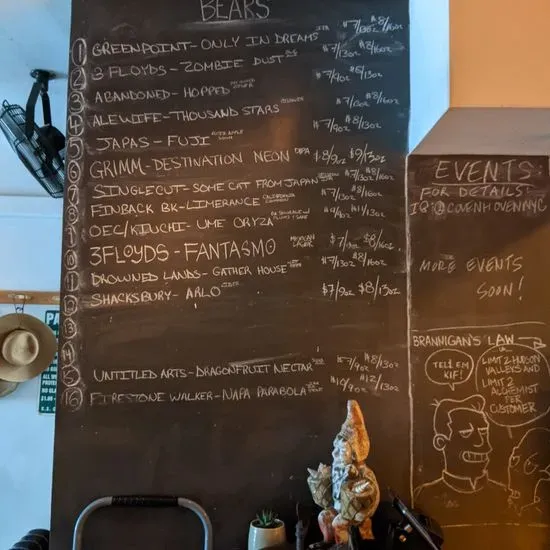 BEARS
1 GREENPOINT- ONLY IN DREAMS IPA $7/13oz $8/16oz
2 3 FLOYDS- ZOMBIE DUST $7/13oz $8/16oz
3 ABANDONED- HOPPED CIDER $7/9oz
4 ALEWIFE- THOUSAND STARS $7/13oz $8/16oz
5 JAPAS- FUJI SOUR $7/9oz $8/13oz
6 GRIMM- DESTINATION NEON DIPA $8/9oz $9/13oz
7 SINGLECUT- SOME CAT FROM JAPAN $7/13oz $8/16oz
8 FINBACK BK- LIMERANCE CALIFORNIA COMMON $7/13oz $8/16oz
OEC/KIUCHI- UME ORYZA
3FLOYDS- FANTASMO MEXICAN LAGER $8/16oz
DROWNED LANDS- GATHER HOUSE $7/13oz $8/16oz
SHACKSBURY- ARLO CIDER $7/9oz $8/13oz
13
14
UNTITLED ARTS- DRAGONFRUIT NECTAR $7/9oz $8/13oz
16 FIRESTONE WALKER- NAPA PARABOLA $10/9oz $12/13oz
EVENTS
FOR DETAILS:
IG @COVENHOVENNYC
MORE EVENTS
SOON!
BRANNIGAN'S LAW
TELL EM
KIF!
LIMIT 2 HUDSON
VALLEYS AND
LIMIT 2
ALCHEMIST
PER
CUSTOMER